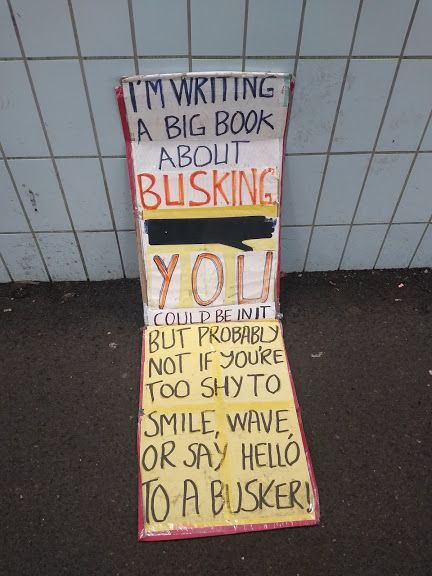 I'M WRITING
A BIG BOOK
ABOUT
BUSKING
YOU
COULD BE IN IT
BUT PROBABLY
NOT IF YOU'RE
TOO SHY TO
SMILE, WAVE
OR SAY HELLO
TO A BUSKER!